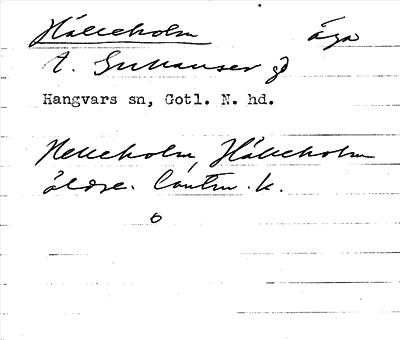 Hälleholm äga
t. Suhauser gd
Hangvars sn, Gotl. N. hd.
Helleholm, Hälleholm
äldre. Lantm. k.
o